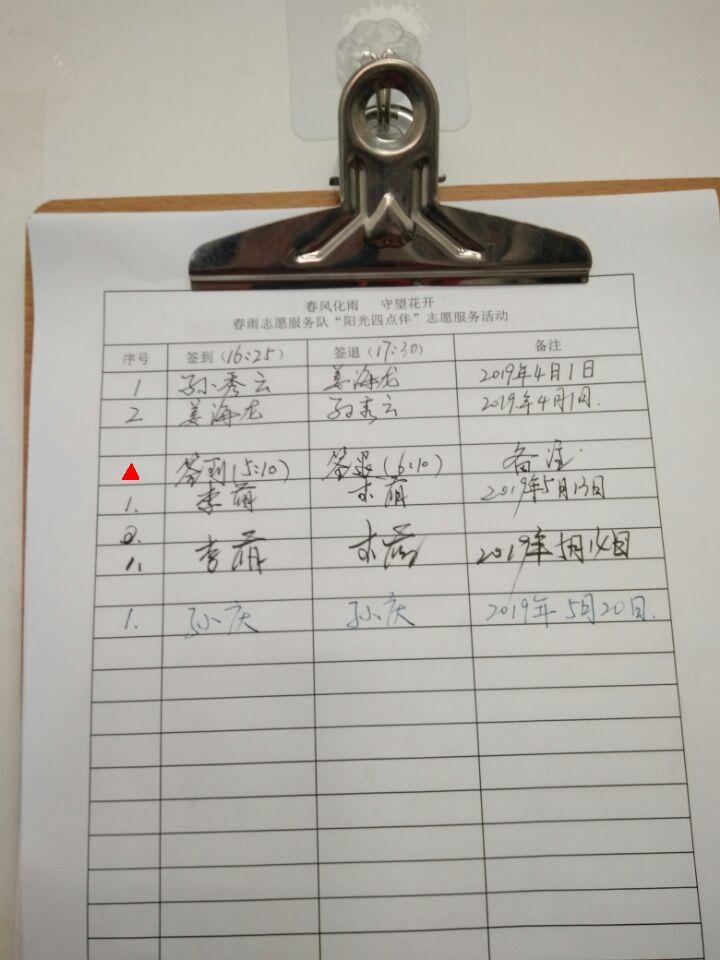 春风化雨 守望花开
春雨志愿服务队“阳光四点伴”志愿服务活动
序号 签到(16:25) 签退(17:30) 备注
1 孙秀云 姜海龙 2019年4月1日
2 姜海龙 孙秀云 2019年4月1日.
签到(5:10) 签退(6:10) 备注
1. 李萌 李萌 2019年5月13日
2.
1. 李萌 李萌 2019年5月14日
1. 孙庆 孙庆 2019年5月20日.